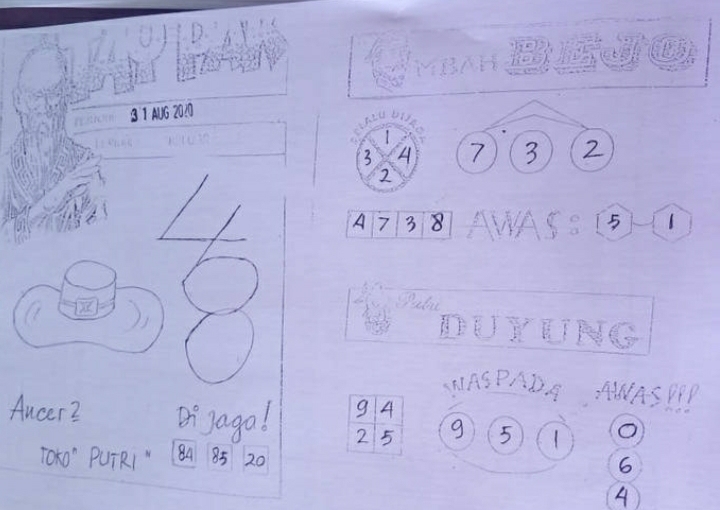 31 AUG 2020
4
8
Ancer2
Di jaga!
TOKO" PUTRI"
84 85 20
MBAH BEJO
SELALU DIJAGA
1
3 4
2
7 3 2
4 7 3 8
AWAS: 5 - 1
Putri
DUYUNG
WASPADA
AWAS!!!
9 4
2 5
9 5 1
0
6
4